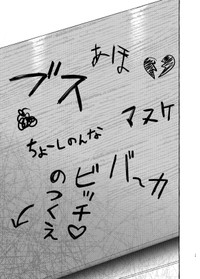 あーほ
ブス
マヌケ
ちょーしのんな
バーカ
ビッチ♡
のつくえ